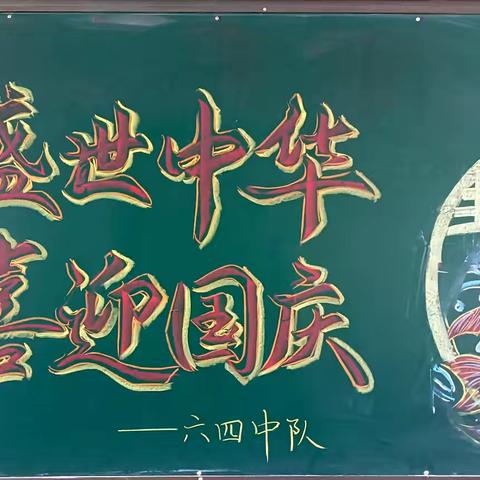 盛世中华
喜迎国庆
——六四中队